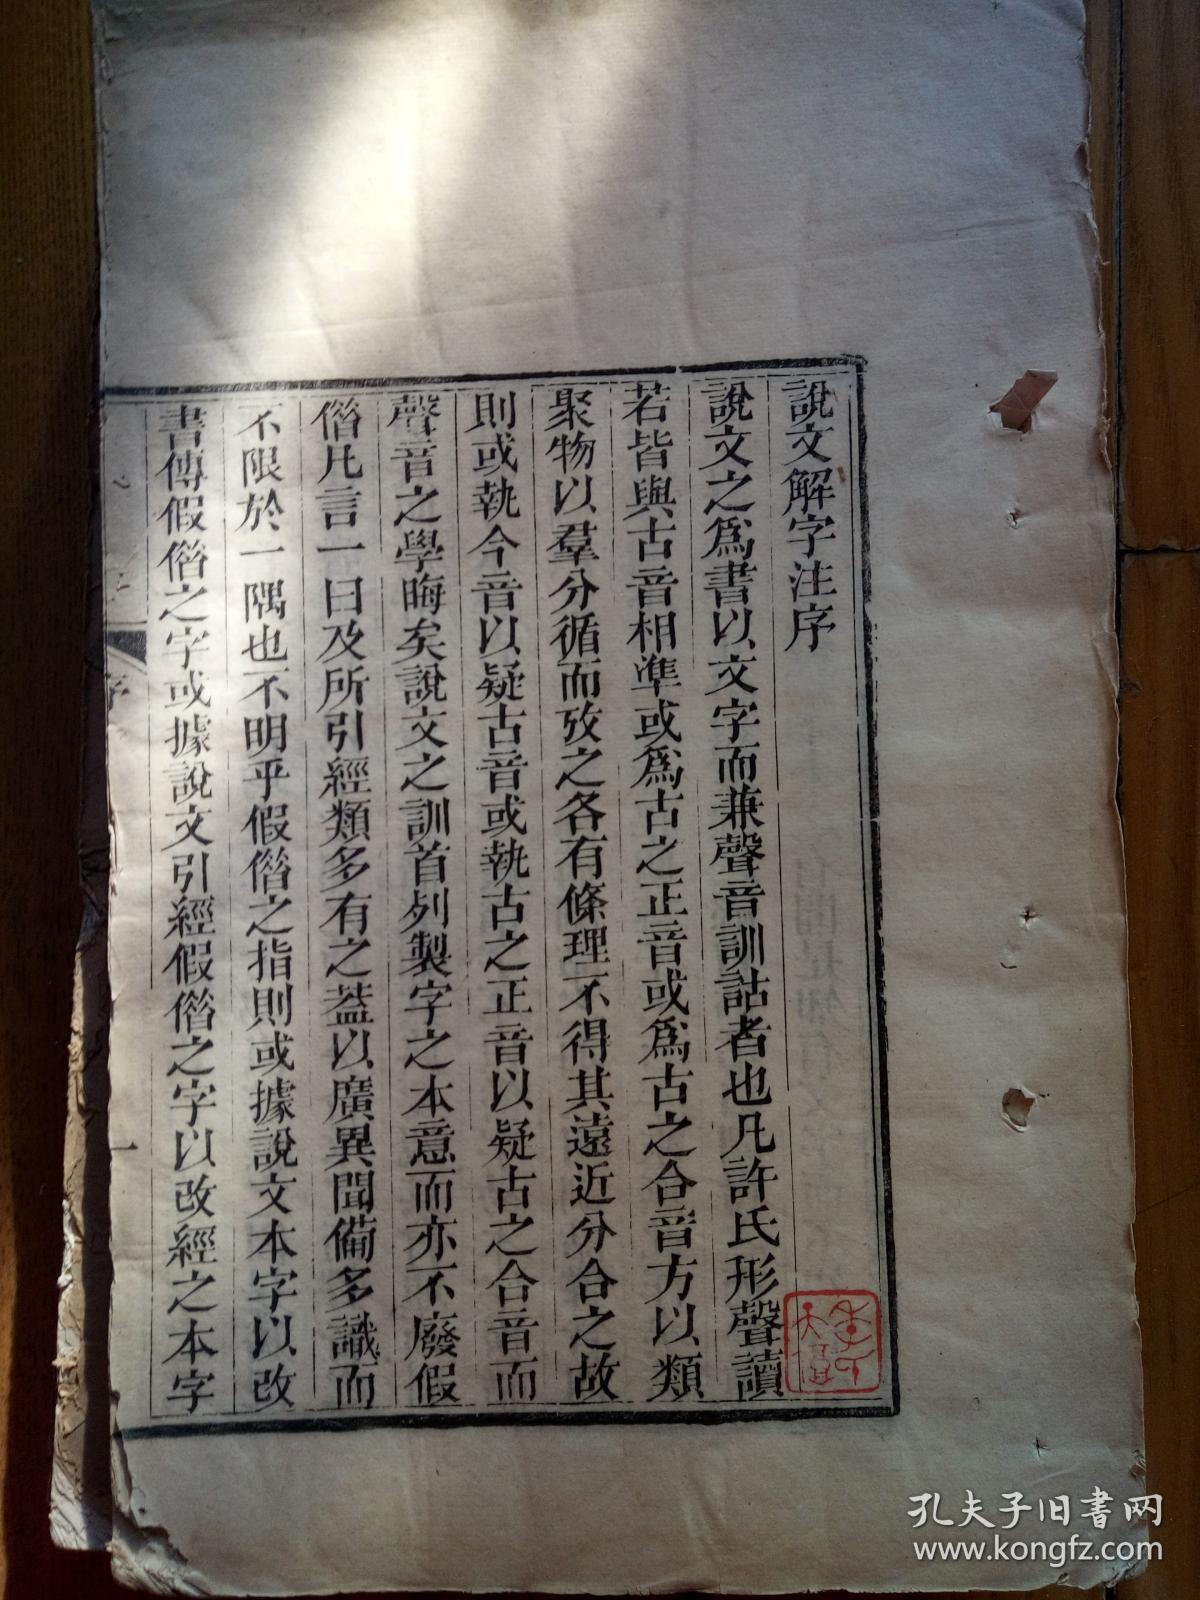 說文解字注序
說文之為書以文字而兼聲音訓詁者也凡許氏形聲讀
若皆與古音相準或為古之正音或為古之合音方以類
聚物以羣分循而攷之各有條理不得其遠近分合之故
則或執今音以疑古音或執古之正音以疑古之合音而
聲音之學晦矣說文之訓首列製字之本意而亦不廢假
僭凡言一曰及所引經類多有之葢以廣異聞備多識而
不限於一隅也不明乎假僭之指則或據說文本字以改
書傳假僭之字或據說文引經假僭之字以改經之本字
序
一
孔夫子旧书网
www.kongfz.com